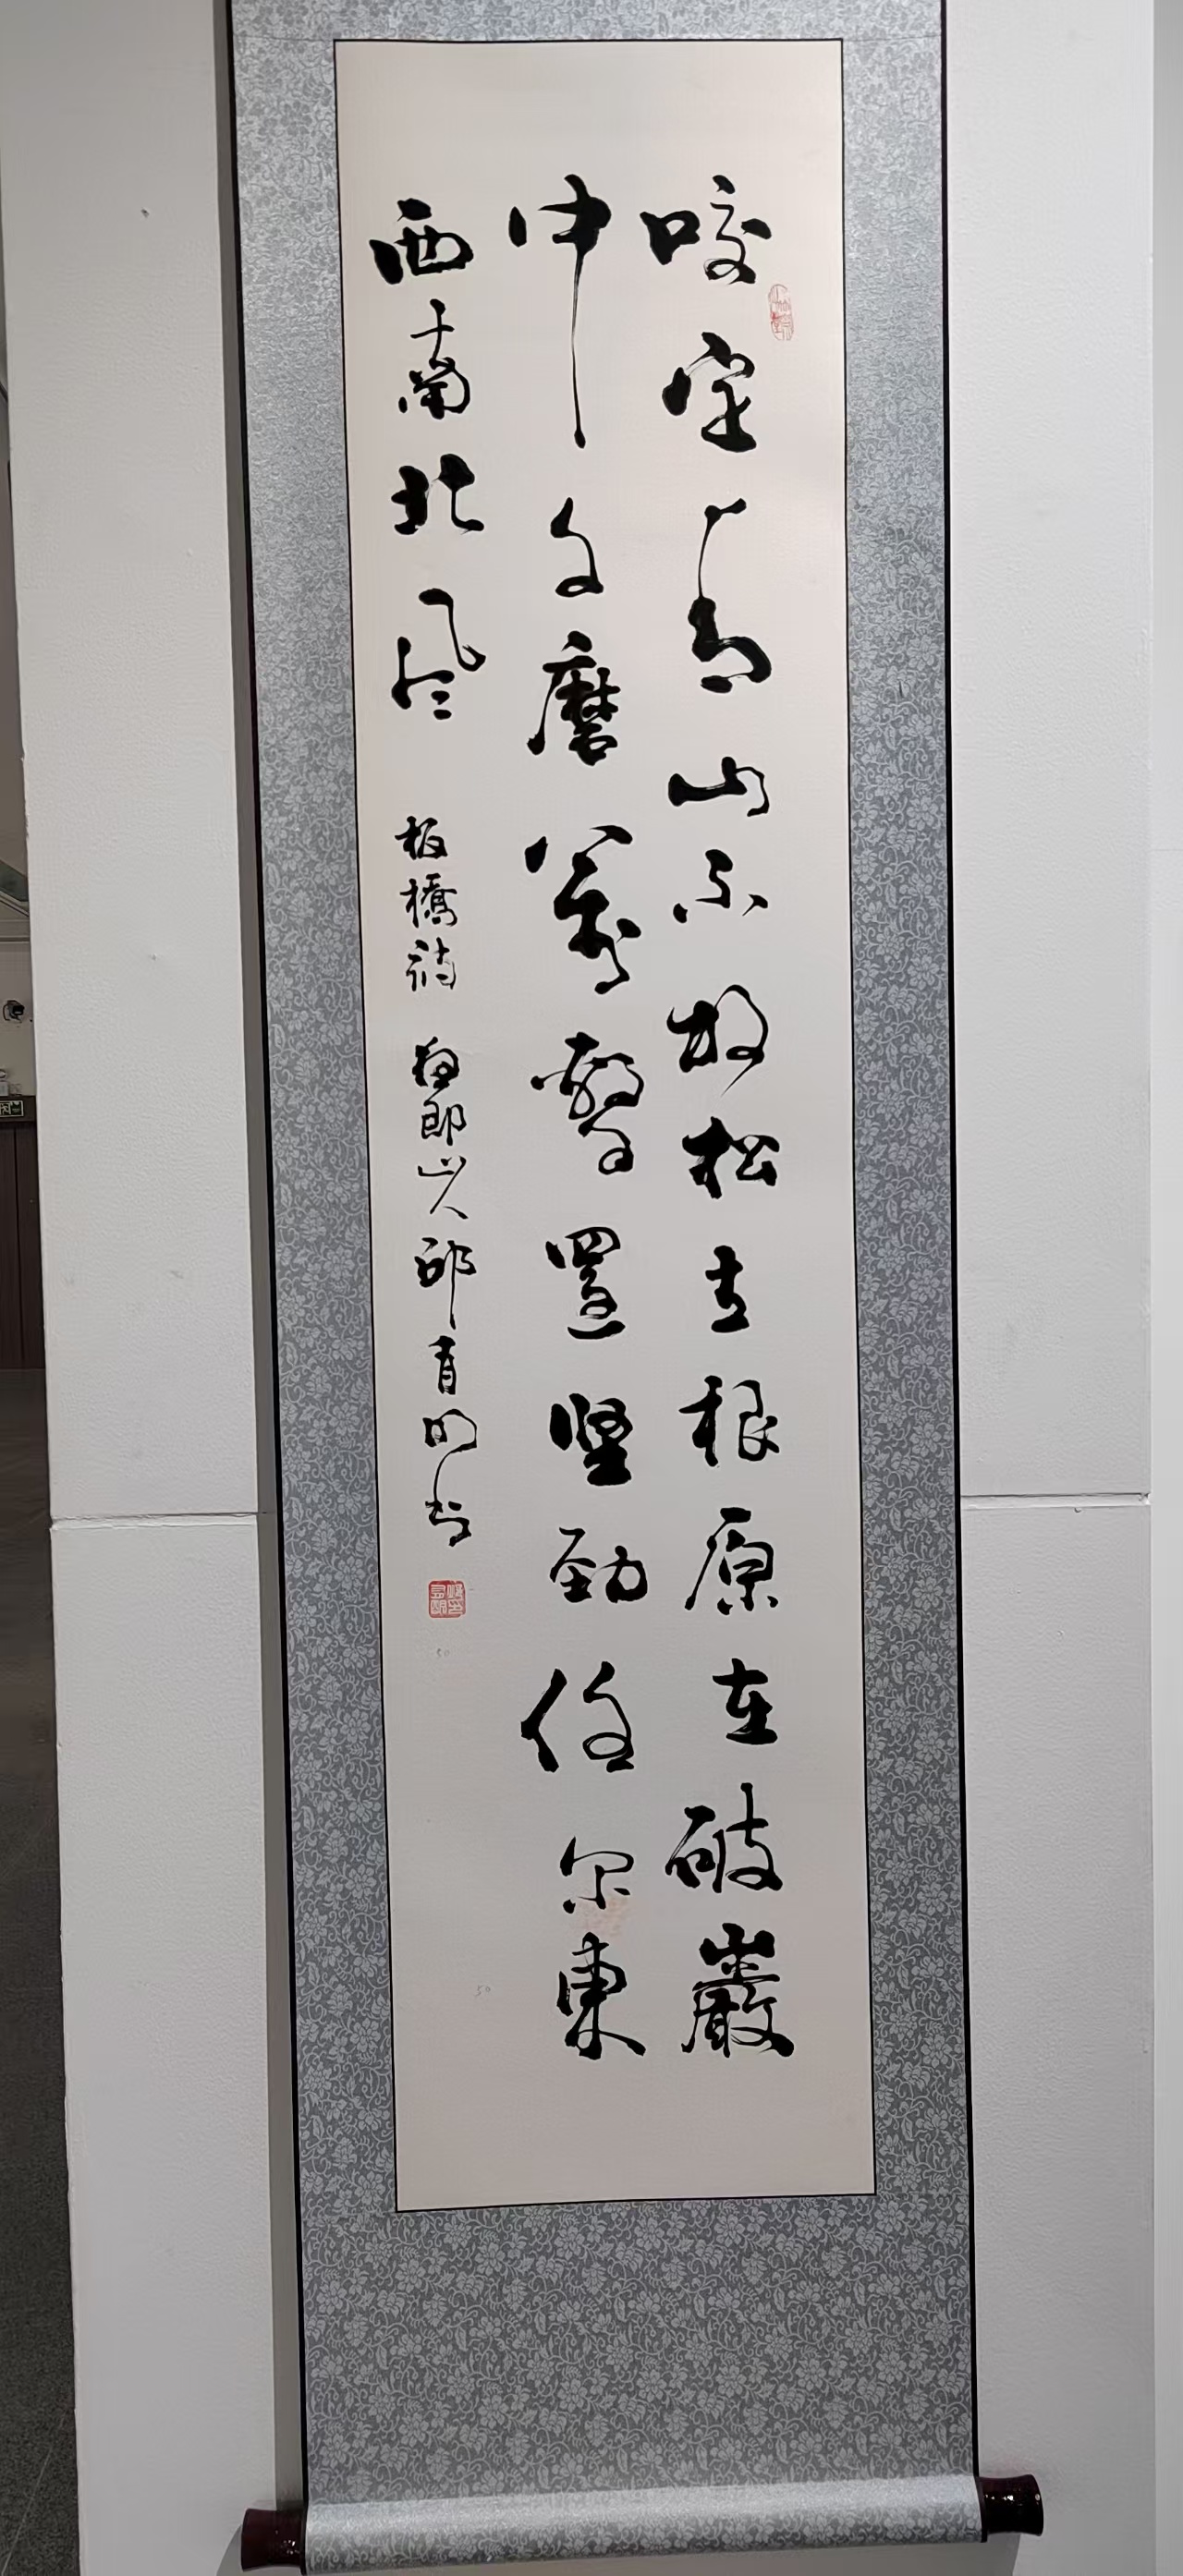 咬定青山不放松立根原在破巖
中千磨萬擊還堅勁任尔東
西南北風 板橋詩 郎山人